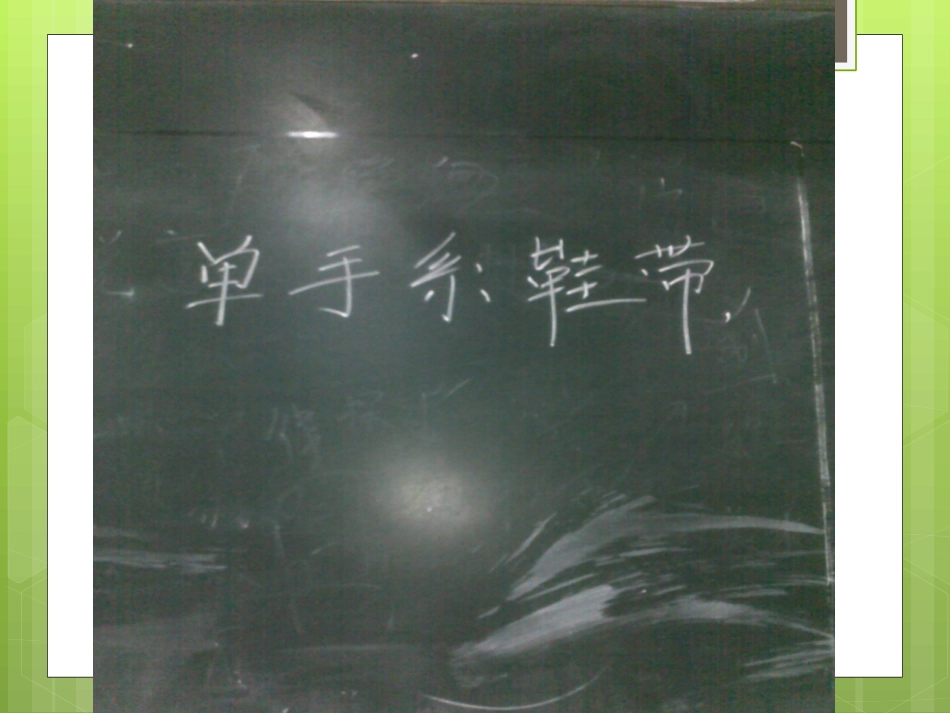 单手系鞋带